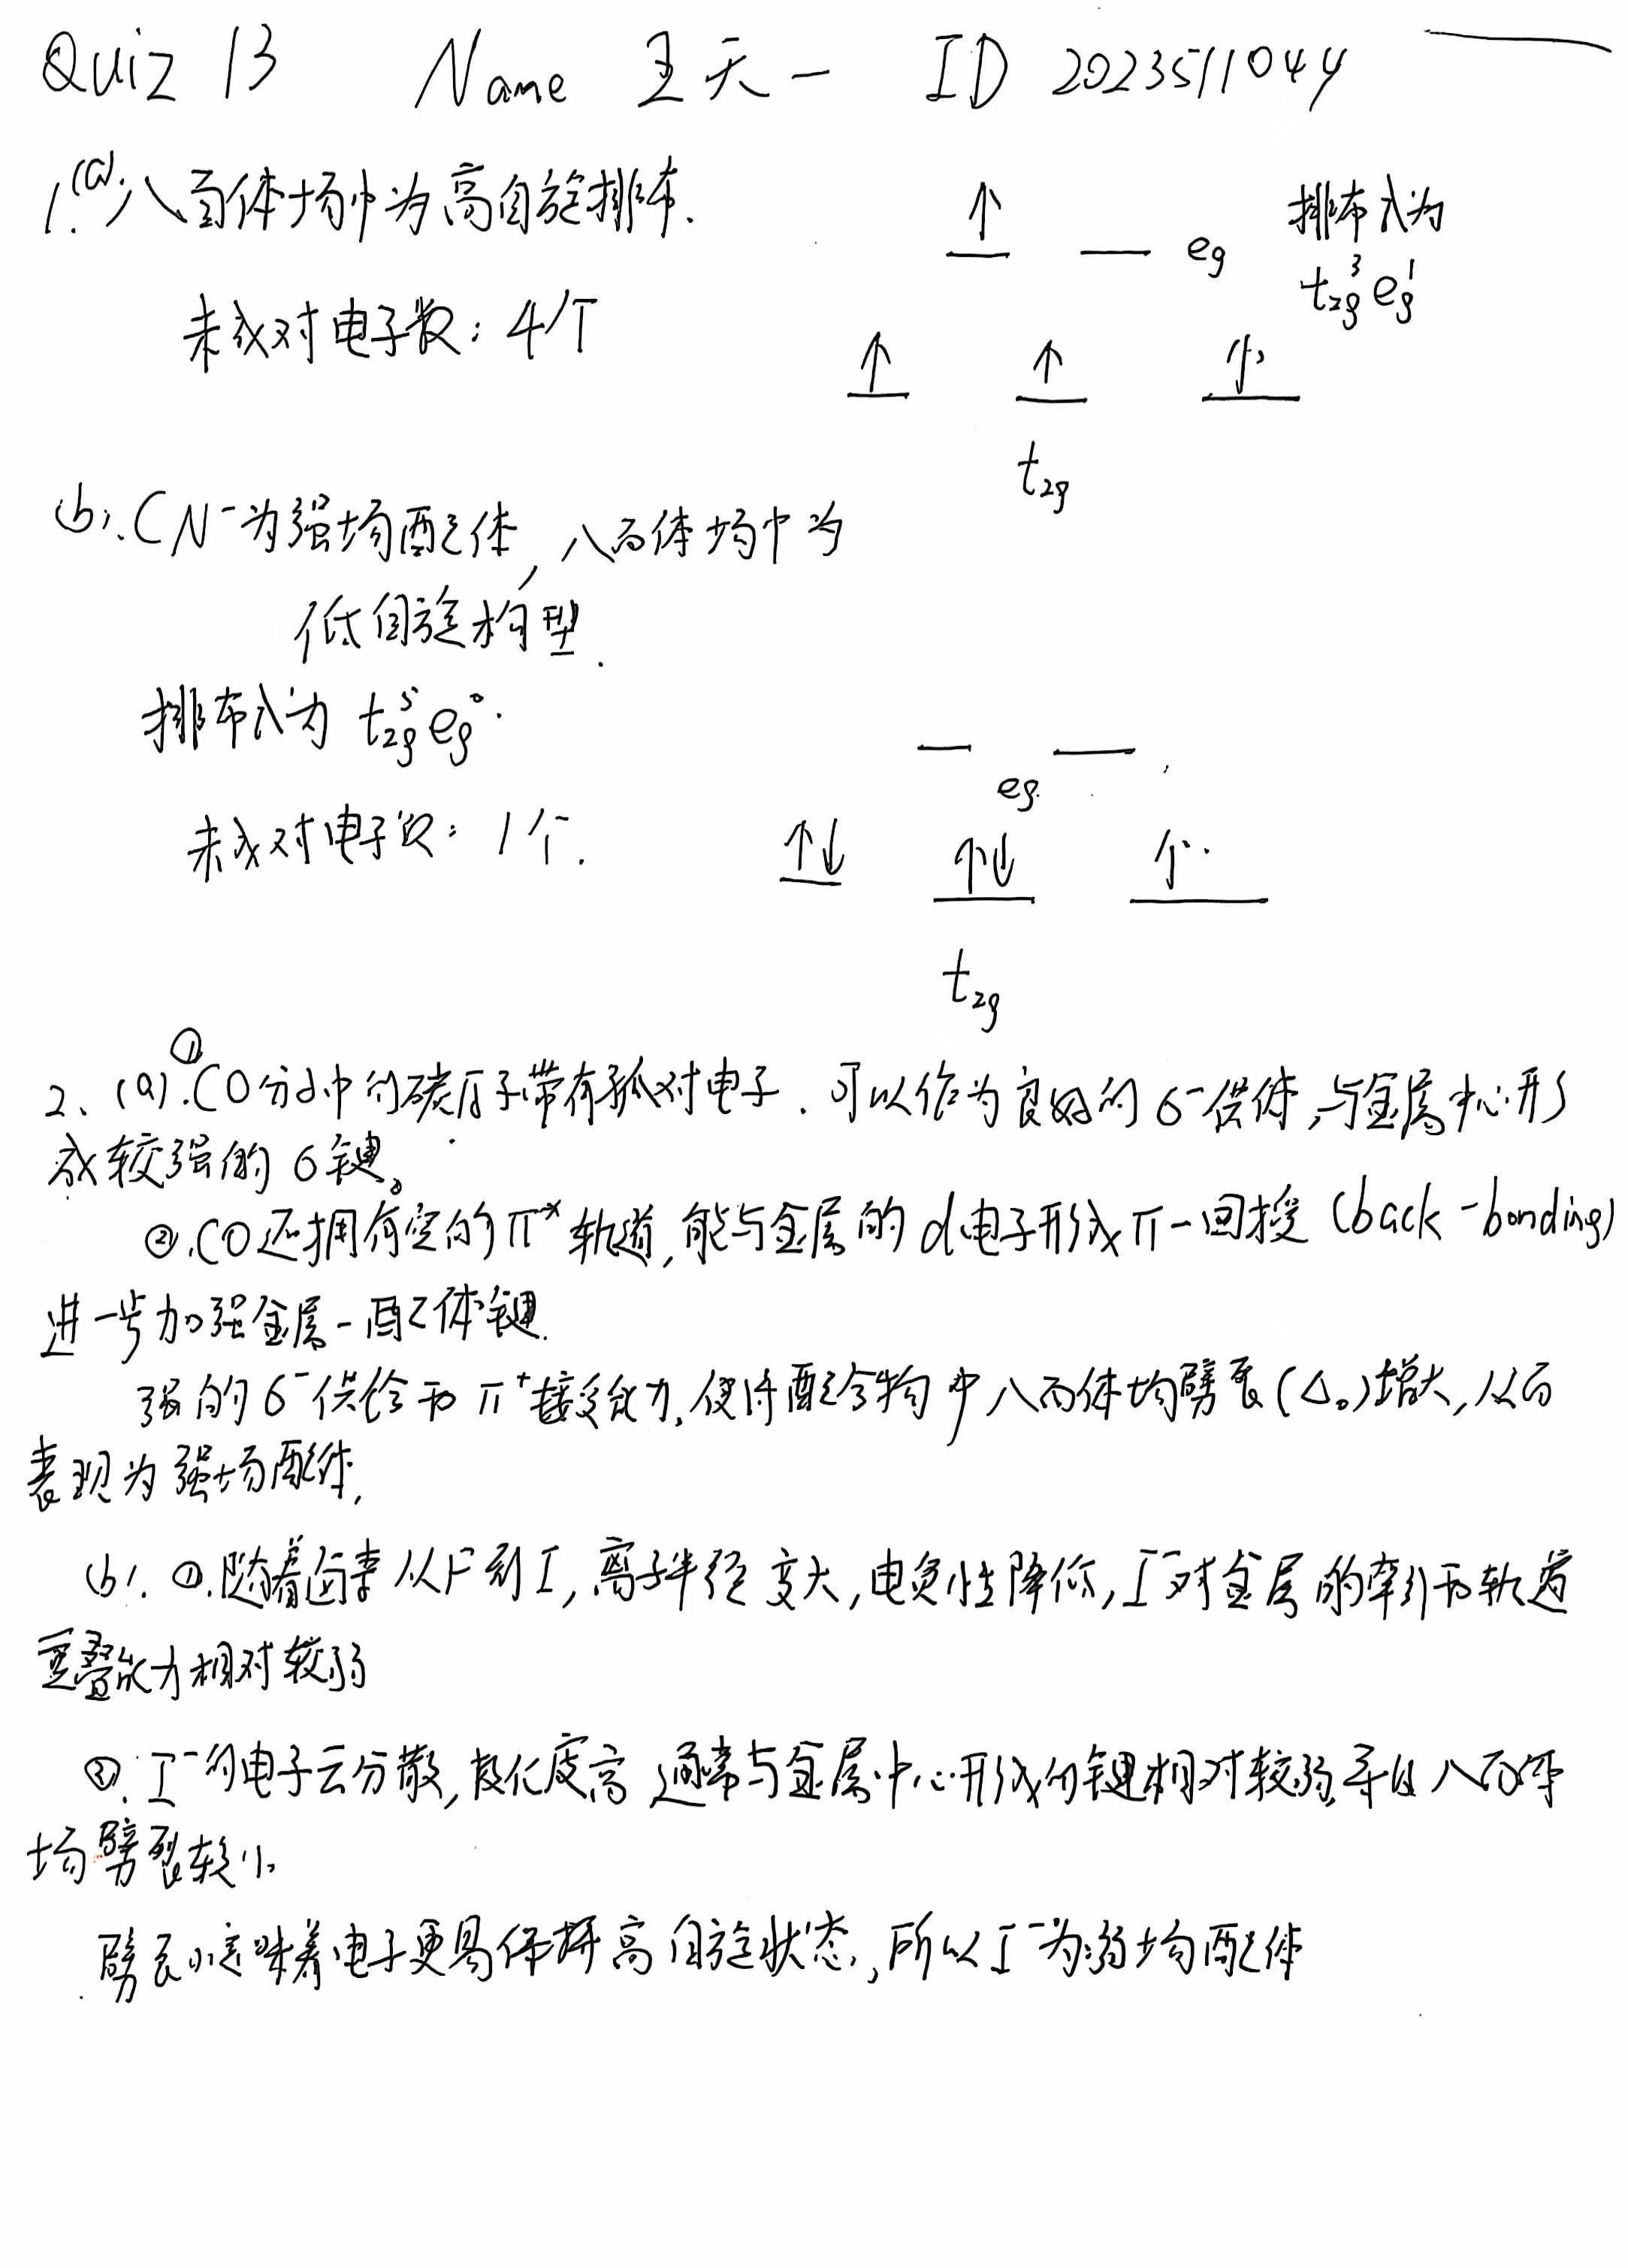 Quiz 13 Name 王天一 ID 2023511044
1.(a). 八面体场中为高自旋排布.
↑ — eg 排布式为
t2g³ eg¹
未成对电子数: 4个
↑ ↑ ↑
t2g
(b). CN⁻为强场配体, 八面体场中为
低自旋构型.
排布式为 t2g⁵ eg⁰.
— —
eg.
未成对电子数: 1个.
↑↓ ↑↓ ↑
t2g
2、(a). ① CO分子中的碳原子带有孤对电子. 可以作为良好的 б-供体, 与金属中心形
成较强的 б键。
②. CO还拥有空的 π* 轨道, 能与金属的 d电子形成 π-回授 (back-bonding)
进一步加强金属-配体键.
强的 б-供给和 π*接受能力, 使得配合物中八面体场劈裂(Δo)增大, 从而
表现为强场配体.
(b). ①. 随着卤素从F到I, 离子半径变大, 电负性降低, I⁻对金属的牵引和轨道
重叠能力相对较弱
②. I⁻的电子云分散, 极化度高 通常与金属中心形成的键相对较弱, 导致八面体
场劈裂较小
劈裂小意味着电子更易保持高自旋状态, 所以I⁻为弱场配体